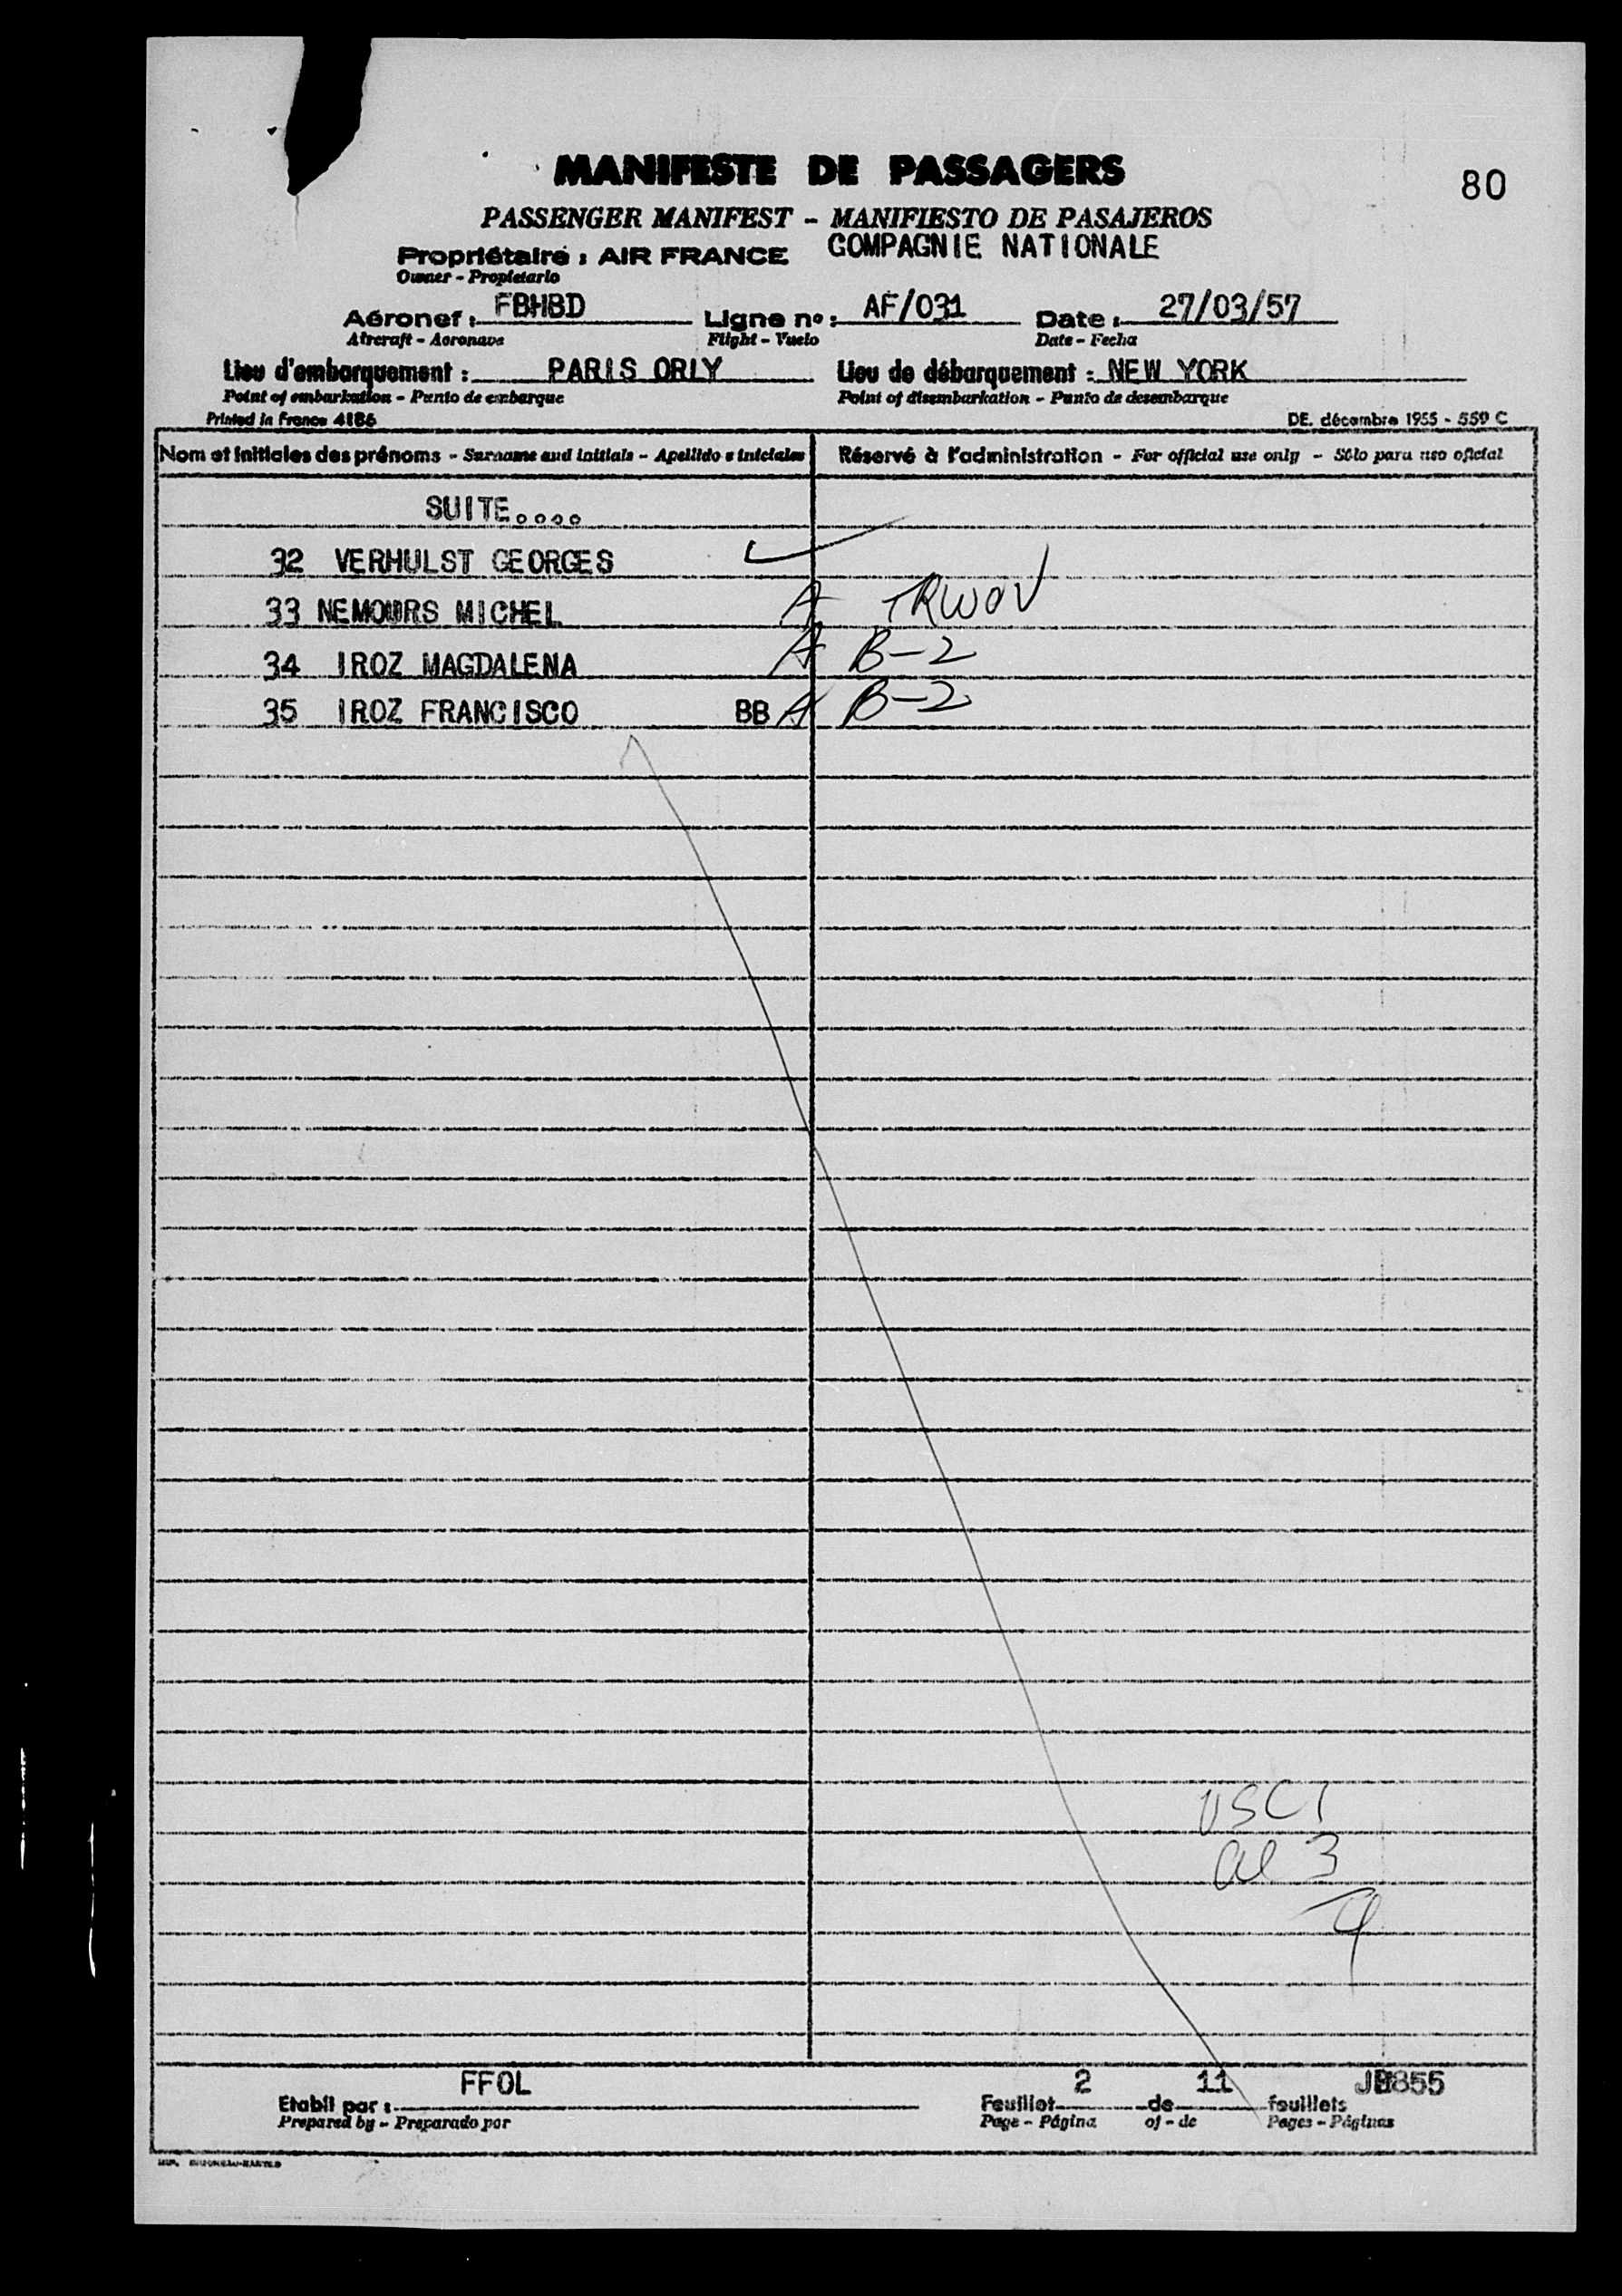 80
MANIFESTE DE PASSAGERS
PASSENGER MANIFEST - MANIFIESTO DE PASAJEROS
Propriétaire : AIR FRANCE COMPAGNIE NATIONALE
Owner - Propietario
Aéronef : FBHBD Ligne nº : AF/031 Date : 27/03/57
Aircraft - Aeronave Flight - Vuelo Date - Fecha
Lieu d'embarquement : PARIS ORLY Lieu de débarquement : NEW YORK
Point of embarkation - Punto de embarque Point of disembarkation - Punto de desembarque
Printed in France 4186 DE. décembre 1955 - 559 C
Nom et initiales des prénoms - Surname and initials - Apellido e iniciales Réservé à l'administration - For official use only - Sólo para uso oficial
SUITE....
32 VERHULST GEORGES
33 NEMOURS MICHEL A TRWOV
34 IROZ MAGDALENA A B-2
35 IROZ FRANCISCO BB A B-2
USC 1
al 3
4
FFOL 2 11
Etabli par : Feuillet de feuillets
Prepared by - Preparado por Page - Página of - de Pages - Páginas